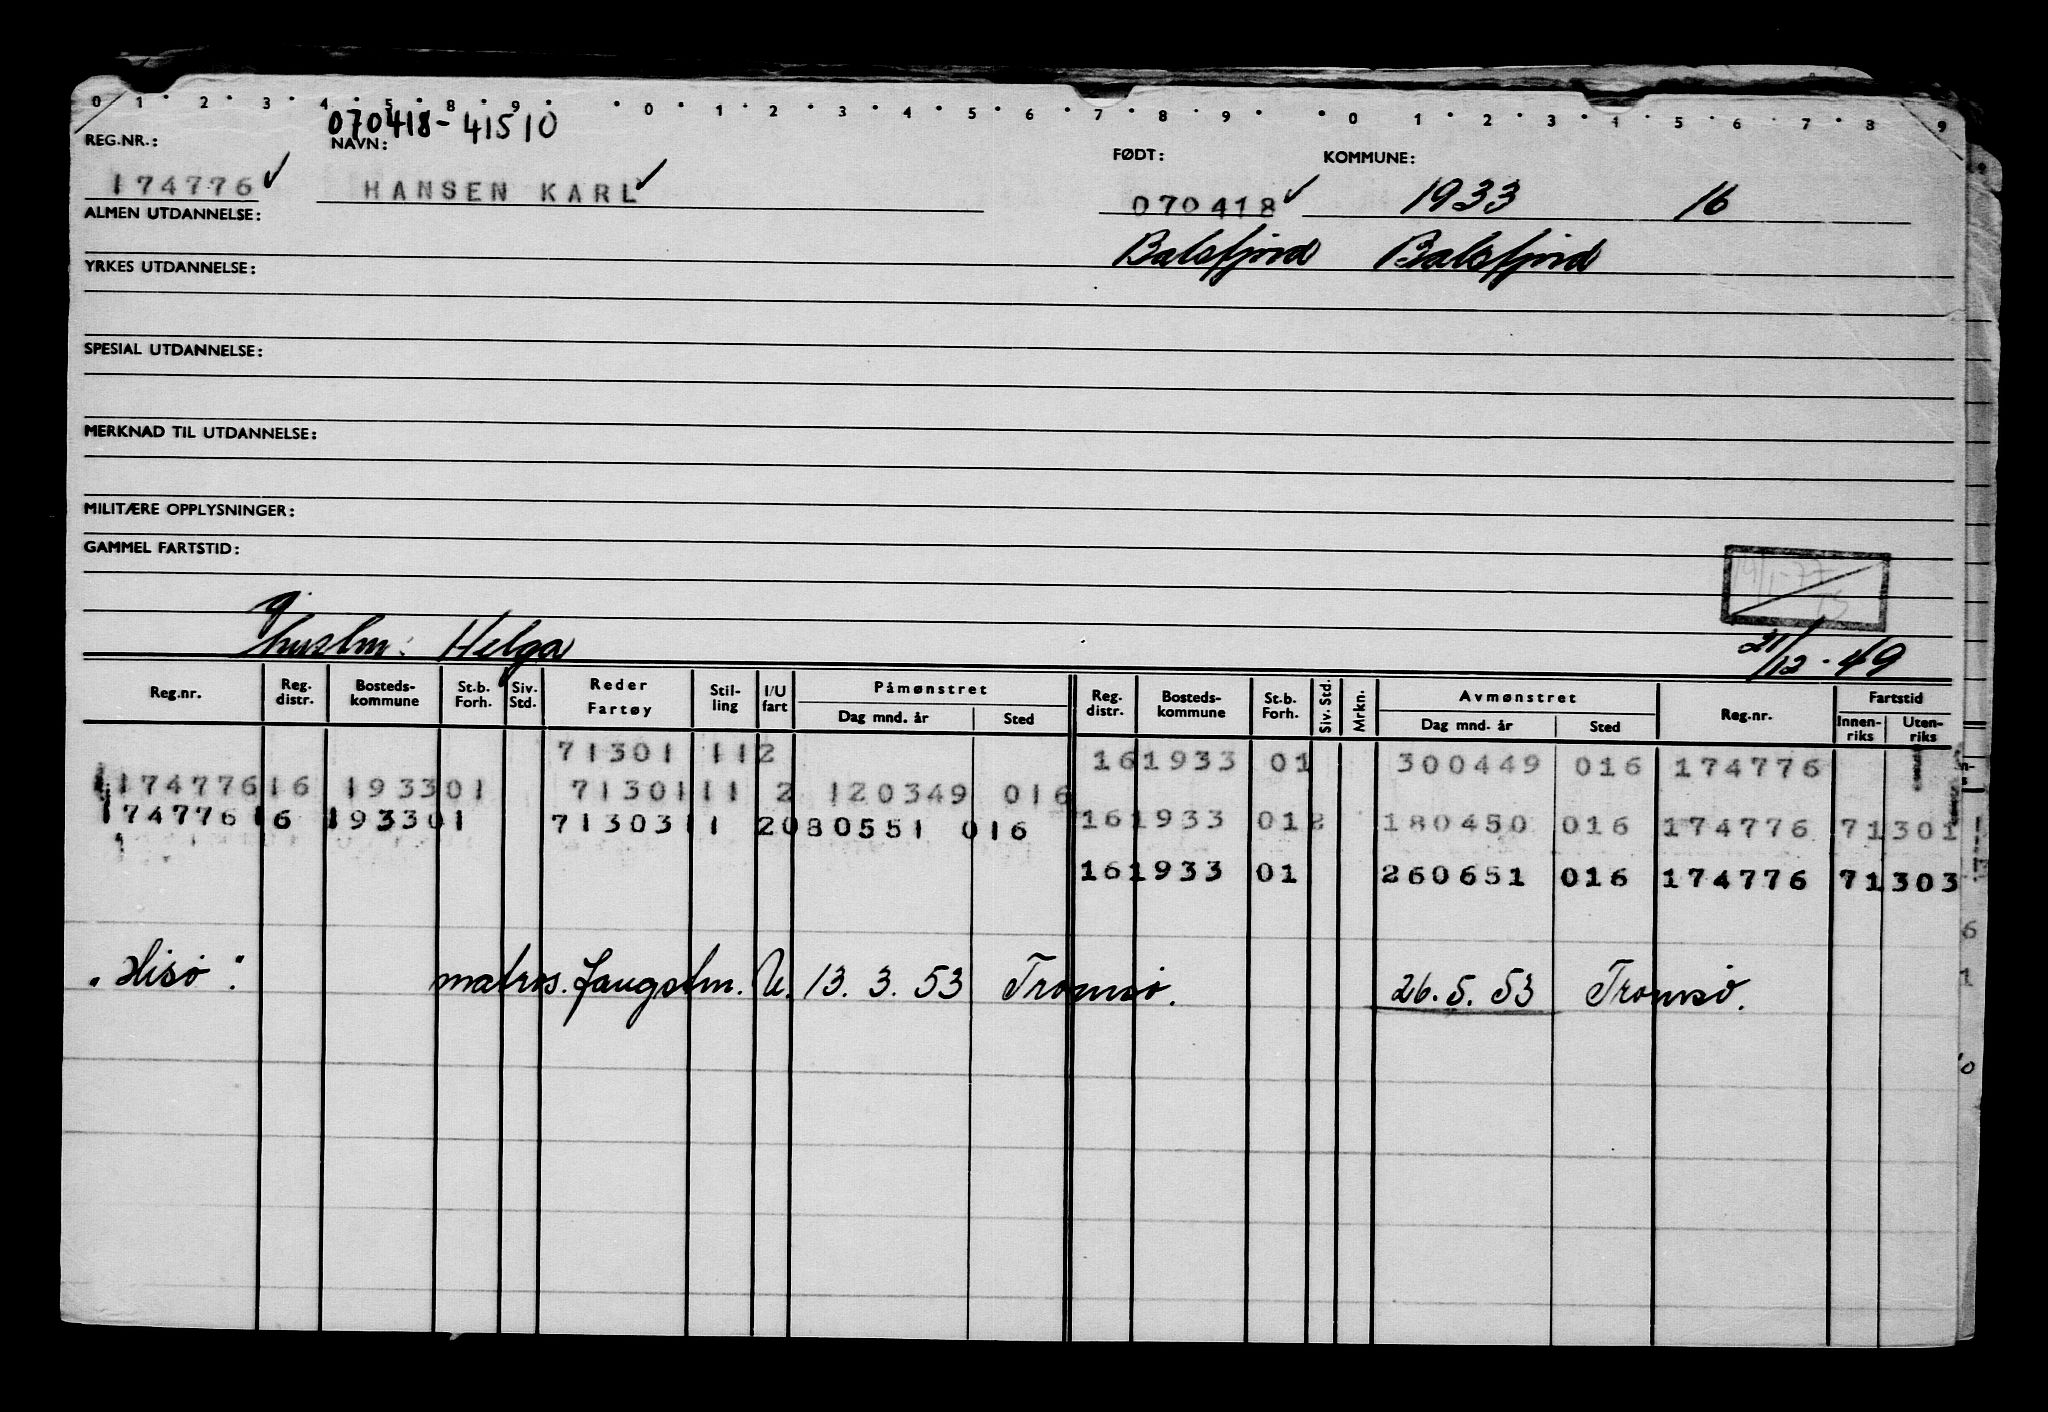 0 1 2 3 4 5 8 9 0 1 2 3 4 5 6 7 8 9 0 1 2 3 4 5 6 7 8 9
070418-41510
REG.NR.: NAVN: FØDT: KOMMUNE:
174776 HANSEN KARL 070418 1933 16
ALMEN UTDANNELSE:
Balsfjord Balsfjord
YRKES UTDANNELSE:
SPESIAL UTDANNELSE:
MERKNAD TIL UTDANNELSE:
MILITÆRE OPPLYSNINGER:
GAMMEL FARTSTID:
g. huslm: Helga 21/12-49
Reg.nr. Reg. distr. Bosteds-kommune St.b. Forh. Siv. Std. Reder Fartøy Stil-ling I/U fart Påmønstret Dag mnd. år Sted Reg. distr. Bosteds-kommune St.b. Forh. Siv. Std. Mrkn. Avmønstret Dag mnd. år Sted Reg.nr. Fartstid Innen-riks Uten-riks
71301 112 161933 01 300449 016 174776
174776 16 193301 71301 11 2 120349 016
174776 16 193301 71303 11 2 080551 016 161933 012 180450 016 174776 71301
161933 01 260651 016 174776 71303
"Hisö". matros. fangstm. U. 13.3.53 Tromsö. 26.5.53 Tromsö.